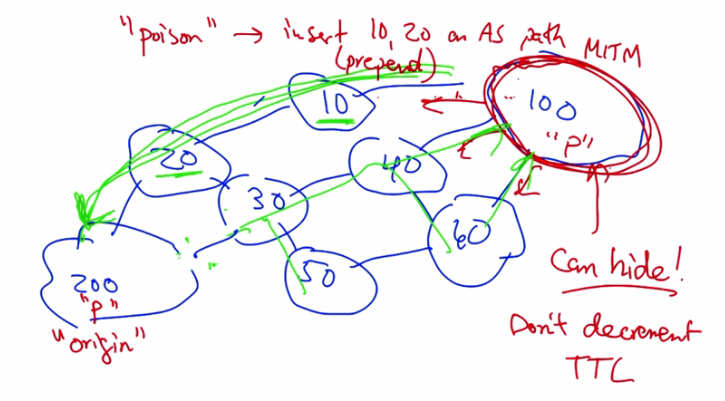 "poison" → insert 10, 20 on AS path MITM
(prepend)
10
100
"P"
20
40
30
60
50
200
"P"
"origin"
Can hide!
Don't decrement
TTL